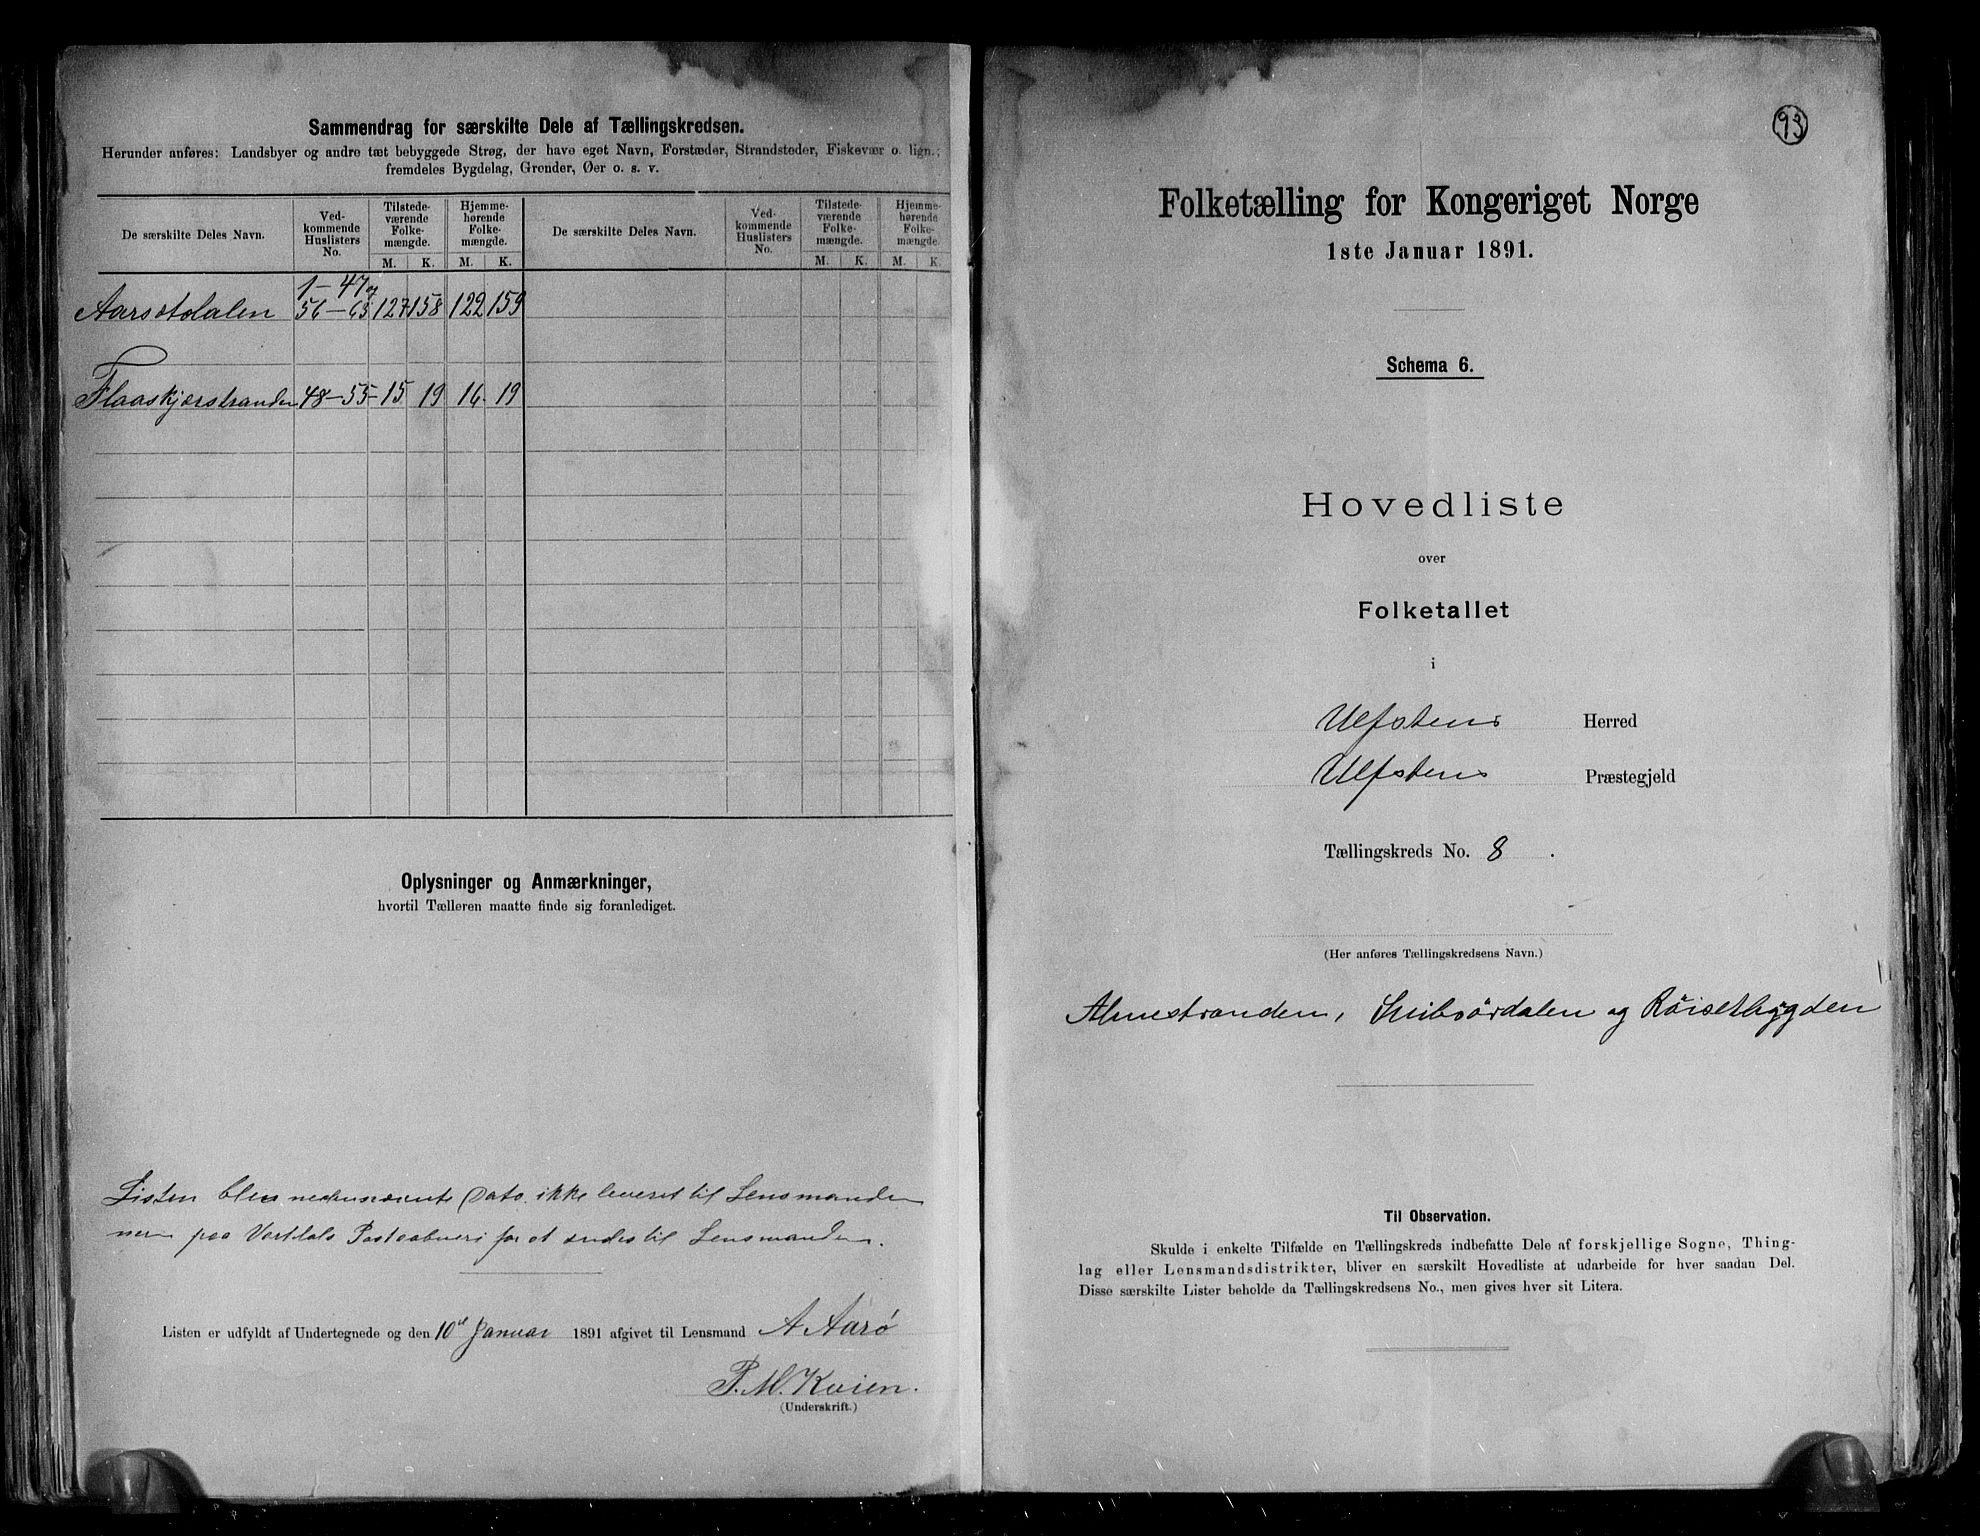 Sammendrag for særskilte Dele af Tællingskredsen.
Herunder anføres: Landsbyer og andre tæt bebyggede Strøg, der have eget Navn, Forstæder, Strandsteder, Fiskevær o. lign.;
fremdeles Bygdelag, Grender, Øer o. s. v.
De særskilte Deles Navn. Ved-kommende Huslisters No. Tilstede-værende Folke-mængde. Hjemme-hørende Folke-mængde. De særskilte Deles Navn. Ved-kommende Huslisters No. Tilstede-værende Folke-mængde. Hjemme-hørende Folke-mængde.
M. K. M. K. M. K. M. K.
1–47 og
Aarsetdalen 56–63 127 158 122 159
Flaaskjærstranden 48–55 15 19 16 19
Oplysninger og Anmærkninger,
hvortil Tælleren maatte finde sig foranlediget.
Listen blev nedennævnte Dato ikke leveret til Lensmanden
men paa Vartdals Postaabneri for at sendes til Lensmanden.
Listen er udfyldt af Undertegnede og den 10de Januar 1891 afgivet til Lensmand A Aarø
P. M. Kvien.
(Underskrift.)
93
Folketælling for Kongeriget Norge
1ste Januar 1891.
Schema 6.
Hovedliste
over
Folketallet
i
Ulfstens Herred
Ulfstens Præstegjeld
Tællingskreds No. 8.
(Her anføres Tællingskredsens Navn.)
Almestranden, Snibsördalen og Röisetbygden
Til Observation.
Skulde i enkelte Tilfælde en Tællingskreds indbefatte Dele af forskjellige Sogne, Thing-
lag eller Lensmandsdistrikter, bliver en særskilt Hovedliste at udarbeide for hver saadan Del.
Disse særskilte Lister beholde da Tællingskredsens No., men gives hver sit Litera.